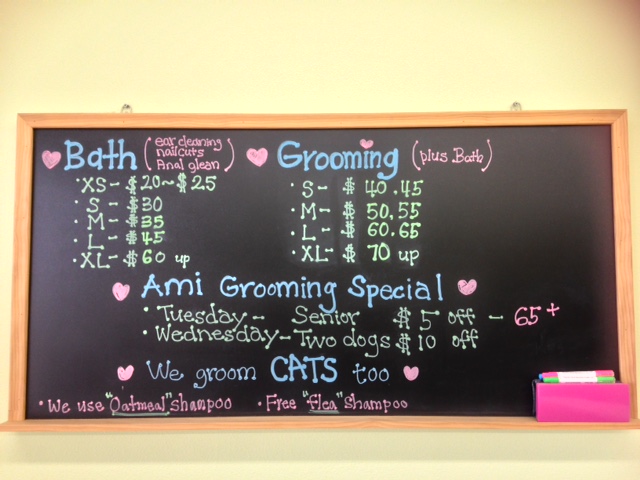 Bath (ear cleaning
nailcuts
Anal glean)
· XS - $20~$25
· S - $30
· M - $35
· L - $45
· XL - $60 up
Grooming (plus Bath)
· S - $ 40.45
· M - $ 50.55
· L - $ 60.65
· XL - $ 70 up
Ami Grooming Special
· Tuesday - Senior $5 off - 65+
· Wednesday - Two dogs $10 off
We groom CATS too
· We use "Oatmeal" shampoo · Free "flea" shampoo